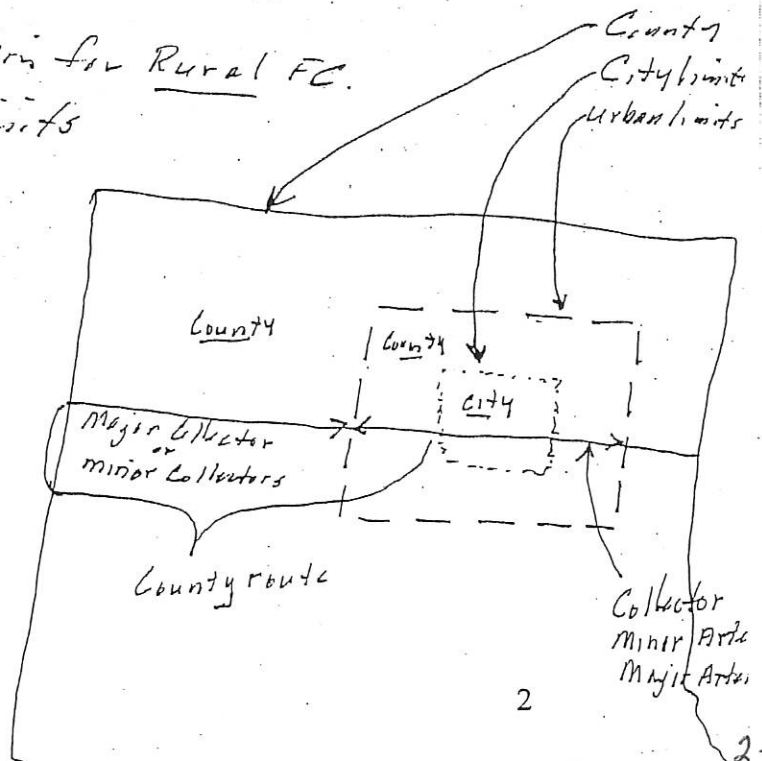 for Rural FC.
County
City limit
urban limits
County
County
city
Major Collector
or
minor Collectors
County route
Collector
Minor Arte
Major Arter
2
2-